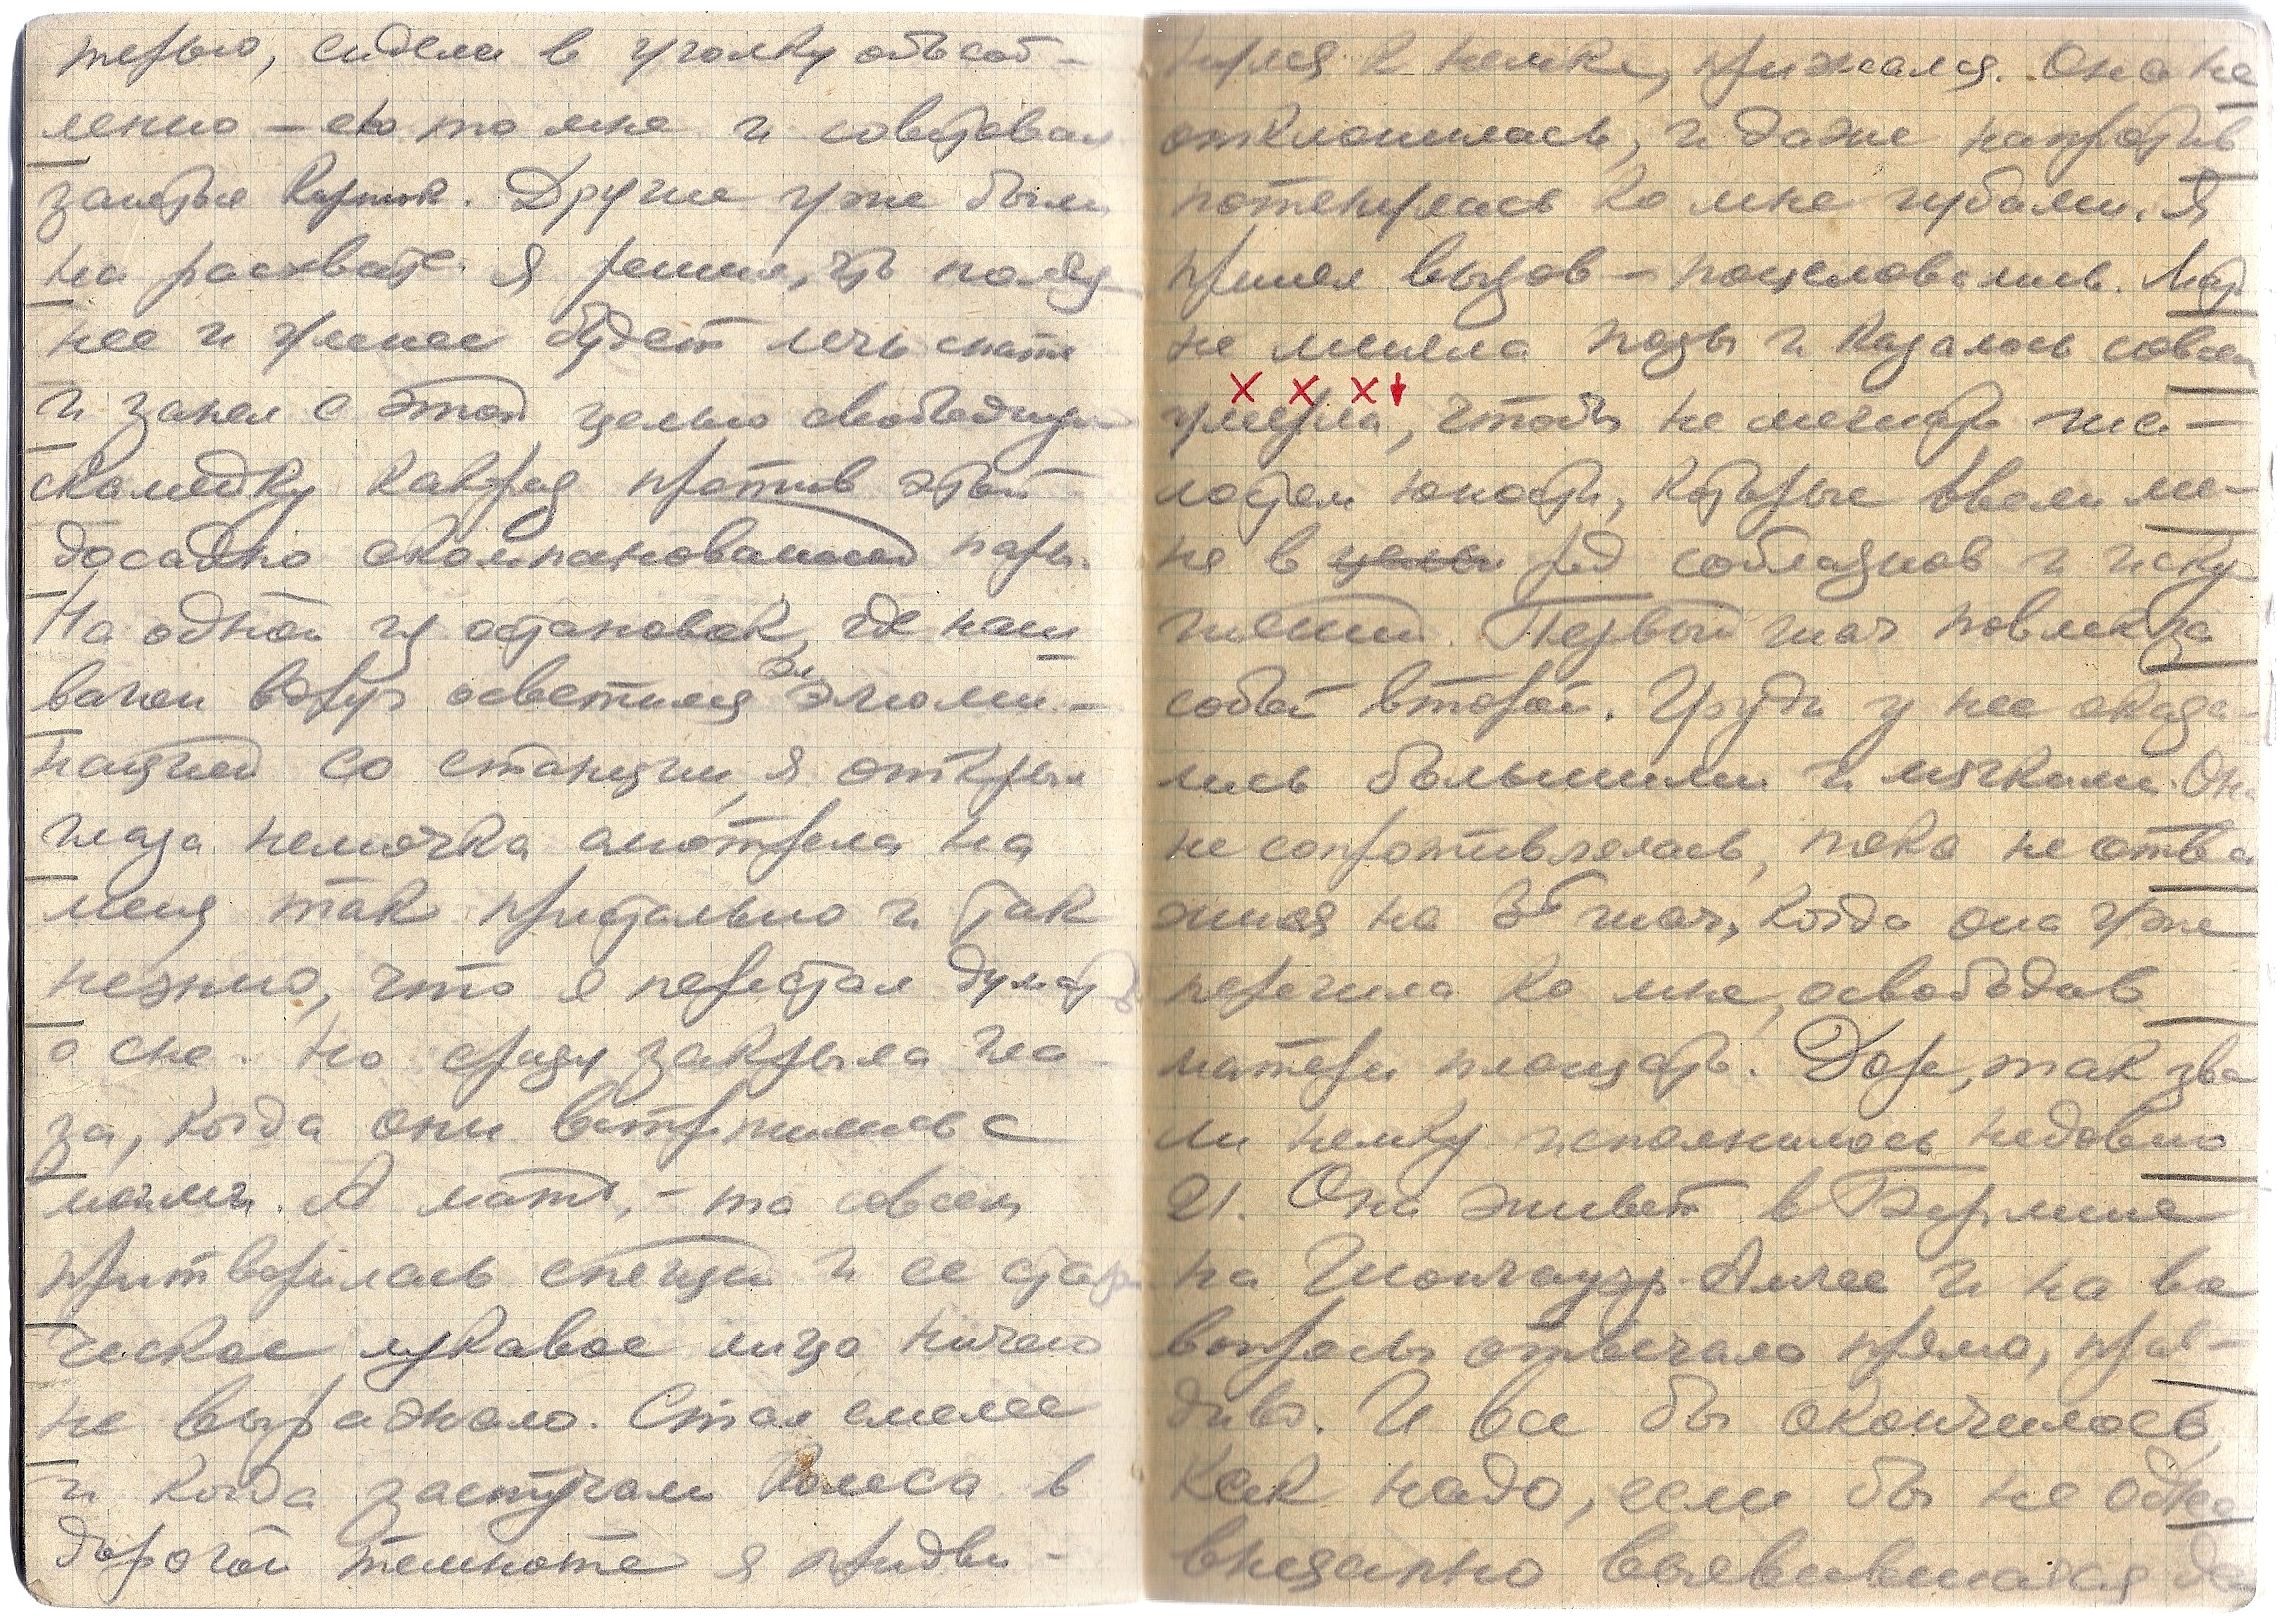 терью, сидели в уголку обьсоб-
ленно – ею то мне и советовал
занятье Куртик. Другие уже были
на расхвате. Я решил, что полез
нее и умнее будет лечь спать
и занял с этой целью свободную
скамейку как раз против этой
досадно скомпанованной пары.
На одной из остановок, где наш
вагон вдруг осветился элюми-
нацией со станции, я открыл
глаза немочка смотрела на
меня так пристально и так
нежно, что я перестал думать
о сне. Но сразу закрыла гла-
за, когда они встретились с
моими. А мать, – та совсем
притворилась спящей и ее стар
ческое лукавое лицо ничего
не выражало. Стал смелее
и когда застучали колеса в
дорогой темноте я придви-
нулся к немке, прижался. Она не
отклонилась, и даже напротив
потянулась ко мне губами. Я
принял вызов – поцеловались. Мать
не меняла позы и казалось совсем
умерла, чтоб не мешать ша-
лостям юности, которые ввели ме-
ня в цепь ряд соблазнов и иску
шений. Первый шаг повлек за
собой второй. Груди у нее оказа-
лись большими и мягкими. Она
не сопротивлялась, пока не отва
жился на 3й шаг, когда она уже
перешла ко мне, освободив
матери площадь. Доре, так зва
ли немку исполнилось недавно
21. Она живет в Берлине
на Шонгаузр-Аллее и на все
вопросы отвечала прямо, прав-
диво. И все бы окончилось,
как надо, если бы не одна
внезапно выявившаяся